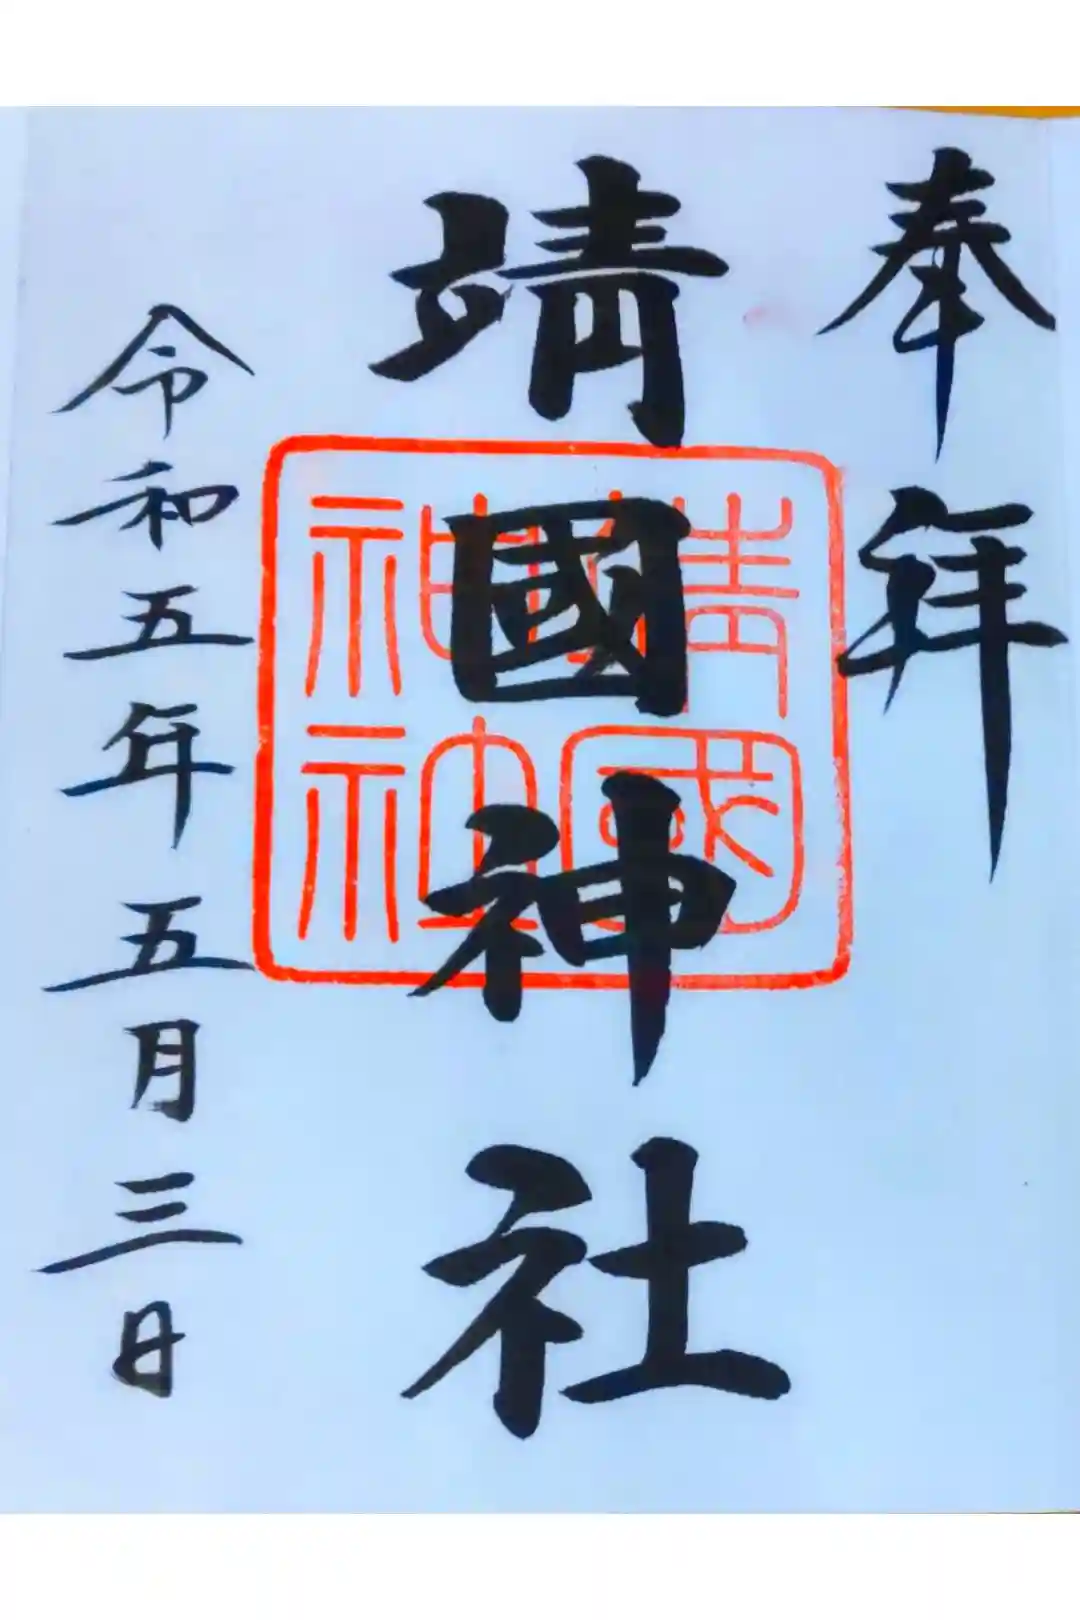 奉拝
靖國神社
靖國
神社
令和五年五月三日